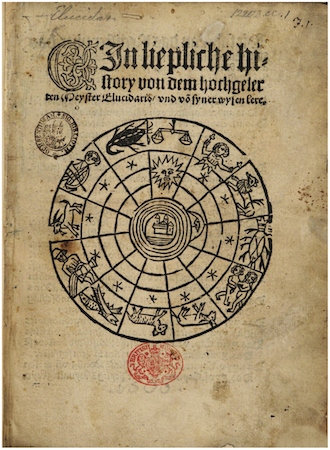 Elucidar
EIn liepliche hi-
story von dem hochgeler
ten Meyster Elucidario / vnd vō syner wysen lere.